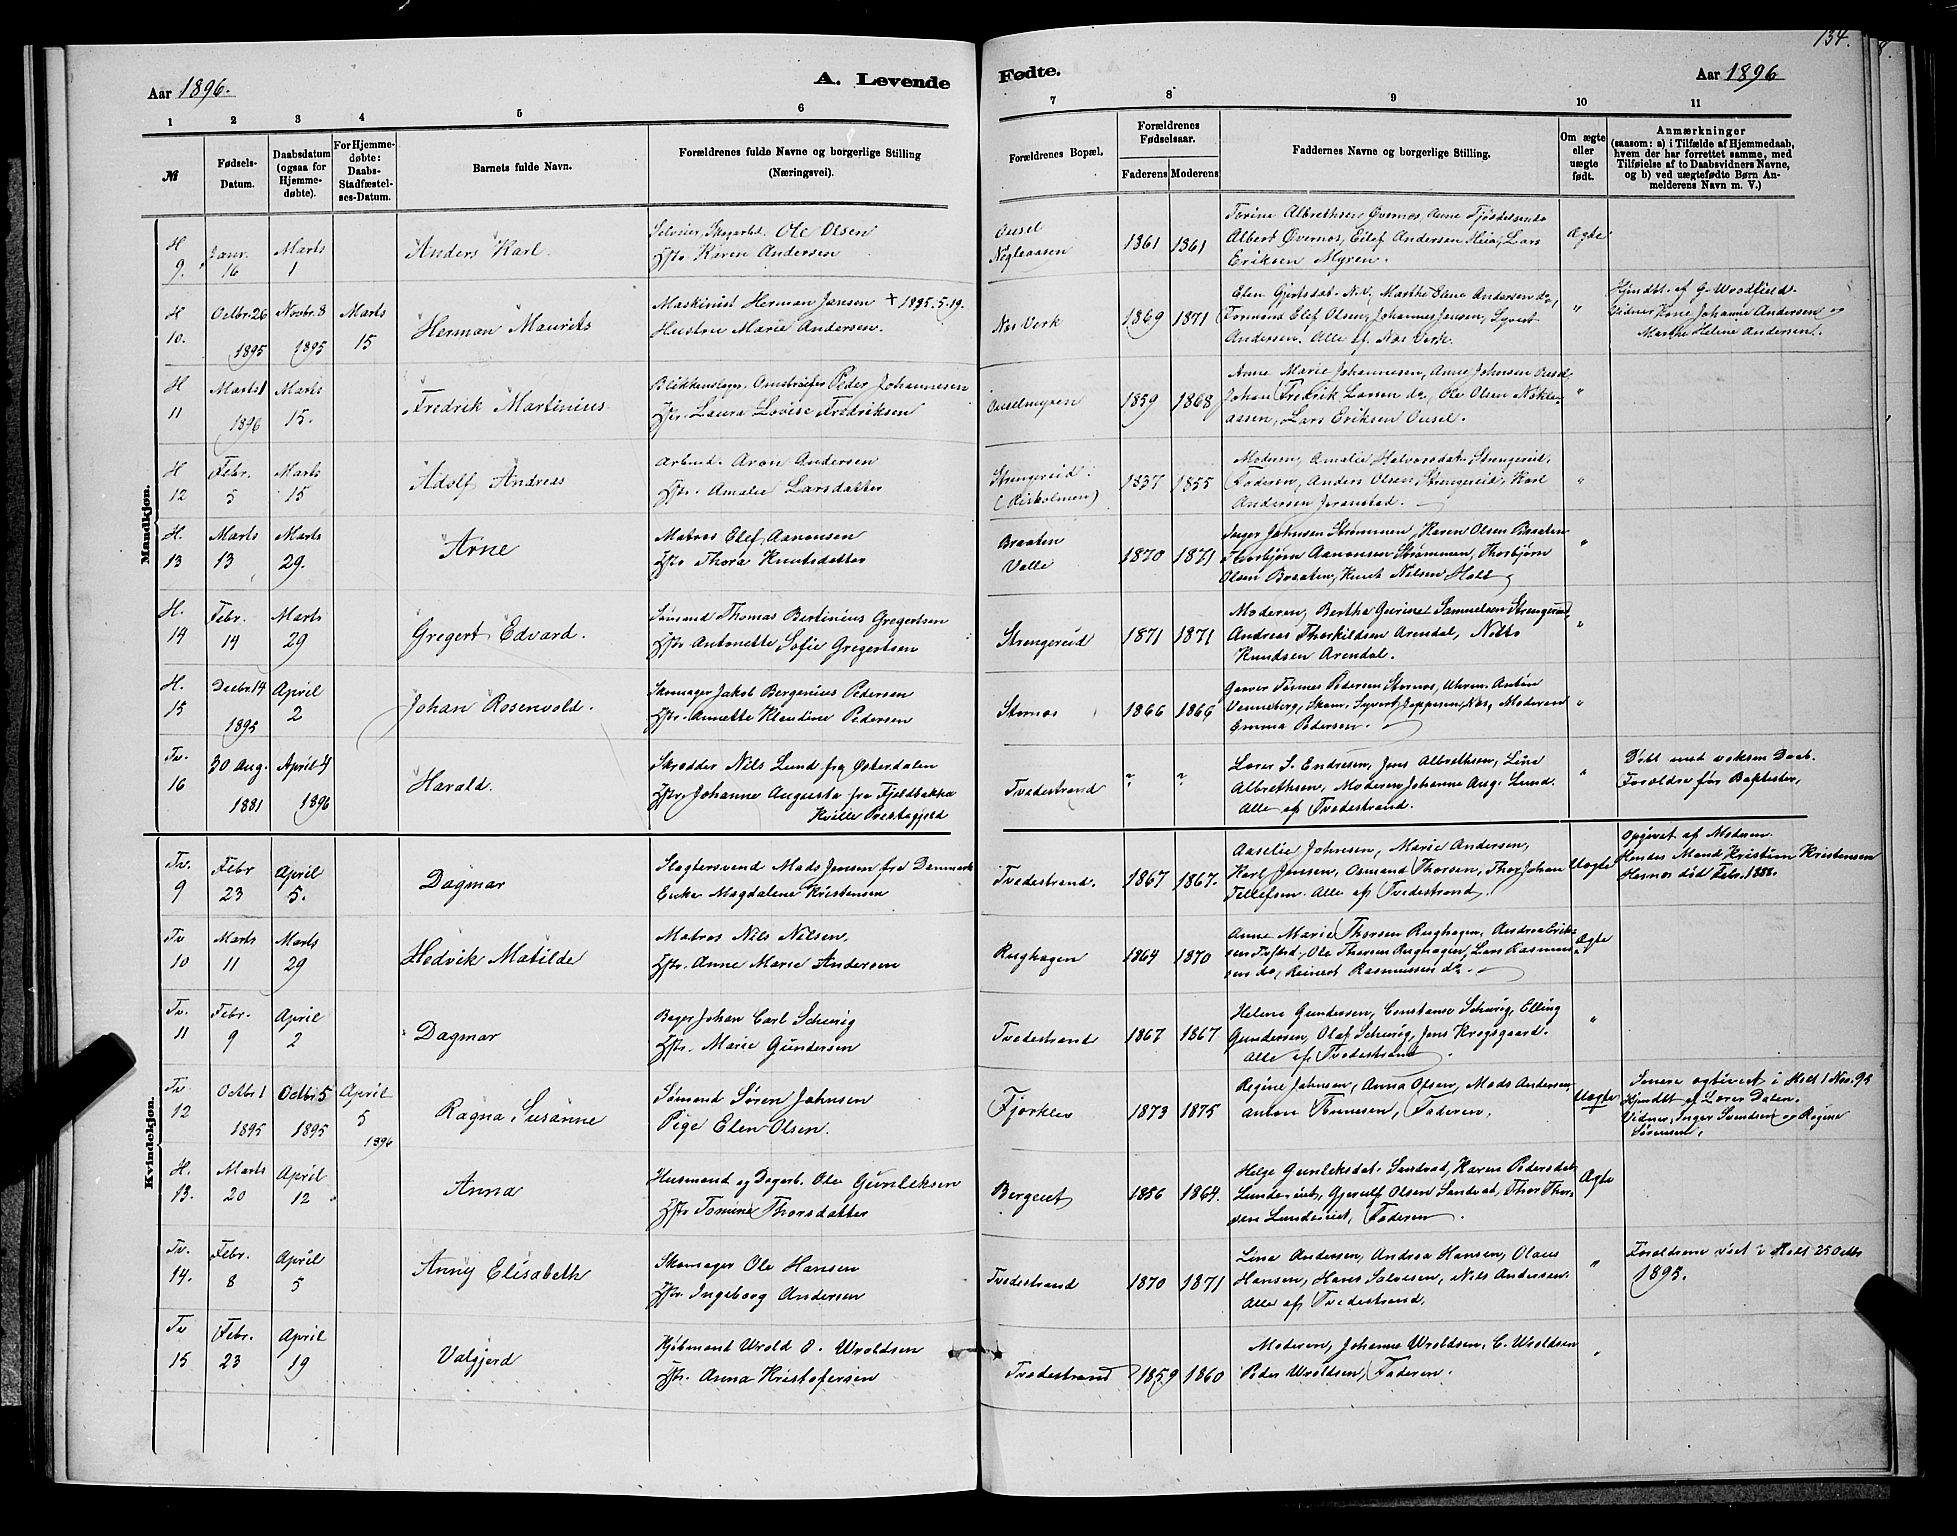 134.
Aar 1896. A. Levende Fødte. Aar 1896
1 2 3 4 5 6 7 8 9 10 11
№ Fødsels-Datum. Daabsdatum (ogsaa for Hjemmedøbte). For Hjemmedøbte: Daabs-Stadfæstelses-Datum. Barnets fulde Navn. Forældrenes fulde Navne og borgerlige Stilling (Næringsvei). Forældrenes Bopæl. Forældrenes Fødselsaar. Faderens Moderens Faddernes Navne og borgerlige Stilling. Om ægte eller uægte født. Anmærkninger (saasom: a) i Tilfælde af Hjemmedaab, hvem der har forrettet samme, med Tilføielse af to Daabsvidners Navne, og b) ved uægtefødte Børn Anmelderens Navn m. V.)
Mandkjøn.
H 9. Janr. 16 Marts 1 Anders Karl.
Selveier, Skogarbd. Ole Olsen
Hstr. Karen Andersen
Ousel Nøglaasen 1861 1861
Torine Albrethsen Øvernes, Anne
Albert Øvernes, Eilef Andersen Heia, Lars
Eriksen Myren.
Ægte
H 10. Octbr. 26 1895 Novbr. 8 1895 Marts 15 Herman Maurits
Maskinist Herman Jansen + 1895.5.19.
Hustru Marie Andersen.
Næs Verk 1869 1871
Elen Gjertsdat. N.V., Marthe Elene Andersen do,
Formand Elef Olsen, Johannes Jensen, Syvert
Andersen. Alle af Næs Verk.
"
Hjmdbt. af G. Woodfield.
Vidner Kone Johanne Andersen og
Marthe Helene Andersen.
H 11 Marts 1 1896 Marts 15. Fredrik Martinius
Blikkenslager, Omstreifer Peder Johannesen
Hstr. Laura Lovise Fredriksen
Ouselmyren 1859 1868
Anne Marie Johannesen, Anne Johnsen Ousel
Johan Fredrik Larsen do, Ole Olsen Nøkle-
aasen, Lars Eriksen Ousel.
"
H 12 Febr. 5 Marts 15 Adolf Andreas
Arbmd. Aron Andersen
Hstr. Amalie Larsdatter
Strengereid (Risholmen) 1837 1855
Moderen, Amalie Halvorsdat. Strengereid,
Faderen, Anders Olsen, Strengereid, Karl
Andersen Joranstad.
"
H. 13 Marts 13 Marts 29. Arne
Matros Elef Aanonsen
Hstr Thora Knutsdatter
Braaten Valle 1870 1871
Inger Johnsen Strømmen, Karen Olsen Braaten
Thorbjørn Aanonsen Strømmen, Thorbjørn
Olsen Braaten, Knut Nilsen Holt
"
H. 14 Febr. 14 Marts 29 Gregert Edvard.
Sømand Thomas Bertinius Gregertsen
Hstr. Antonette Sofie Gregertsen
Strengereid 1871 1871
Moderen, Berthe Gurine Samuelsen Strengereid,
Andreas Thorkildsen Arendal, Nils
Knudsen Arendal.
"
H. 15 Decbr. 14 1895 April 2 Johan Rosenvold.
Skomager Jakob Bergenius Pedersen
Hstr. Annette Klaudine Pedersen
Stornæs 1866 1866
Garver Tønnes Pedersen Stornæs, Uhrm. Anton
Venneberg, Skom. Syvert Jeppesen, Næs, Moderen
Emma Pedersen.
"
Tv. 16 30 Aug. 1881 April 4 1896 Harald.
Skrædder Nils Lund fra Østerdalen
Hstr. Johanne Augusta fra Fjeldbakka
Kville Prestegjeld
Tvedestrand ? ?
Lærer S. Endresen, Jens Albrethsen, Line
Albrethsen, Moderen Johanne Aug. Lund.
Alle af Tvedestrand.
"
Døbt med voksen Daab.
Forældre før Baptister.
Kvindekjøn.
Tv. 9 Febr 23 April 5. Dagmar
Slagtersvend Mads Jensen fra Danmark
Enke Magdalene Kristensen
Tvedestrand. 1867 1867.
Aaselie Johnsen, Marie Andersen,
Karl Jensen, Osmund Thorsen, Thor Johan
Tellefsen. Alle af Tvedestrand.
Uægte
Opgivet af Moderen.
Hendes Mand Kristian Kristensen
Hesnes død Febr. 1888.
Tv 10 Marts 11 Marts 29 Hedvik Matilde
Matros Nils Nilsen.
Hstr. Anne Marie Andersen
Rughagen 1864 1870
Anne Marie Thorsen Rughagen, Andrea Erik-
sen, Ole Thorsen Rughagen, Lars Rasmus-
sen do, Reinert Rasmussen do.
Ægte
Tv. 11 Febr. 9 April 2 Dagmar
Bager Johan Carl Scherig
Hstr. Marie Gundersen
Tvedestrand 1867 1867
Helene Gundersen, Constanse Scherig, Elling
Gundersen, Olaf Scherig, Jens Krogsgaard.
Alle af Tvedestrand.
"
Tv. 12 Octbr 1 1895 Octbr. 5 1895 April 5 1896 Ragna Susanne
Sømand Søren Johnsen
Pige Elen Olsen.
Fjærkleiv 1873 1875
Regine Johnsen, Anna Olsen, Mads Andersen,
Anton Tønnesen, Faderen.
Uægte
Senere ægteviet i Holt 1 Nov. 95
Hjmdbt af Lærer Dalen.
Vidner, Inger Svendsen og Regine
Sørensen.
H. 13. Marts 20 April 12 Anna
Husmand og Dagarb. Ole Gunleksen
Hstr Tomine Thorsdatter
Bergeret 1856 1864.
Helge Gunleksdat. Sandvad, Karen Pedersdat
Lundereiet, Gjerulf Olsen Sandvad, Thor Thor-
sen Lundereiet, Faderen.
Ægte
Tv. 14. Febr. 8 April 5 Anny Elisabeth
Skomager Ole Hansen
Hstr. Ingeborg Andersen
Tvedestrand 1870 1871
Lina Andersen, Andrea Hansen, Olaus
Hansen, Hans Salvesen, Nils Andersen.
Alle af Tvedestrand.
"
Forældrene viet i Holt 25 Octbr
1895.
Tv 15 Febr. 23 April 19 Valgjerd
Kjøbmand Wrold O. Wroldsen
Hstr. Anna Kristofersen
Tvedestrand 1859 1860
Moderen, Johanne Wroldsen, C. Wroldsen
Peder Wroldsen, Faderen.
"